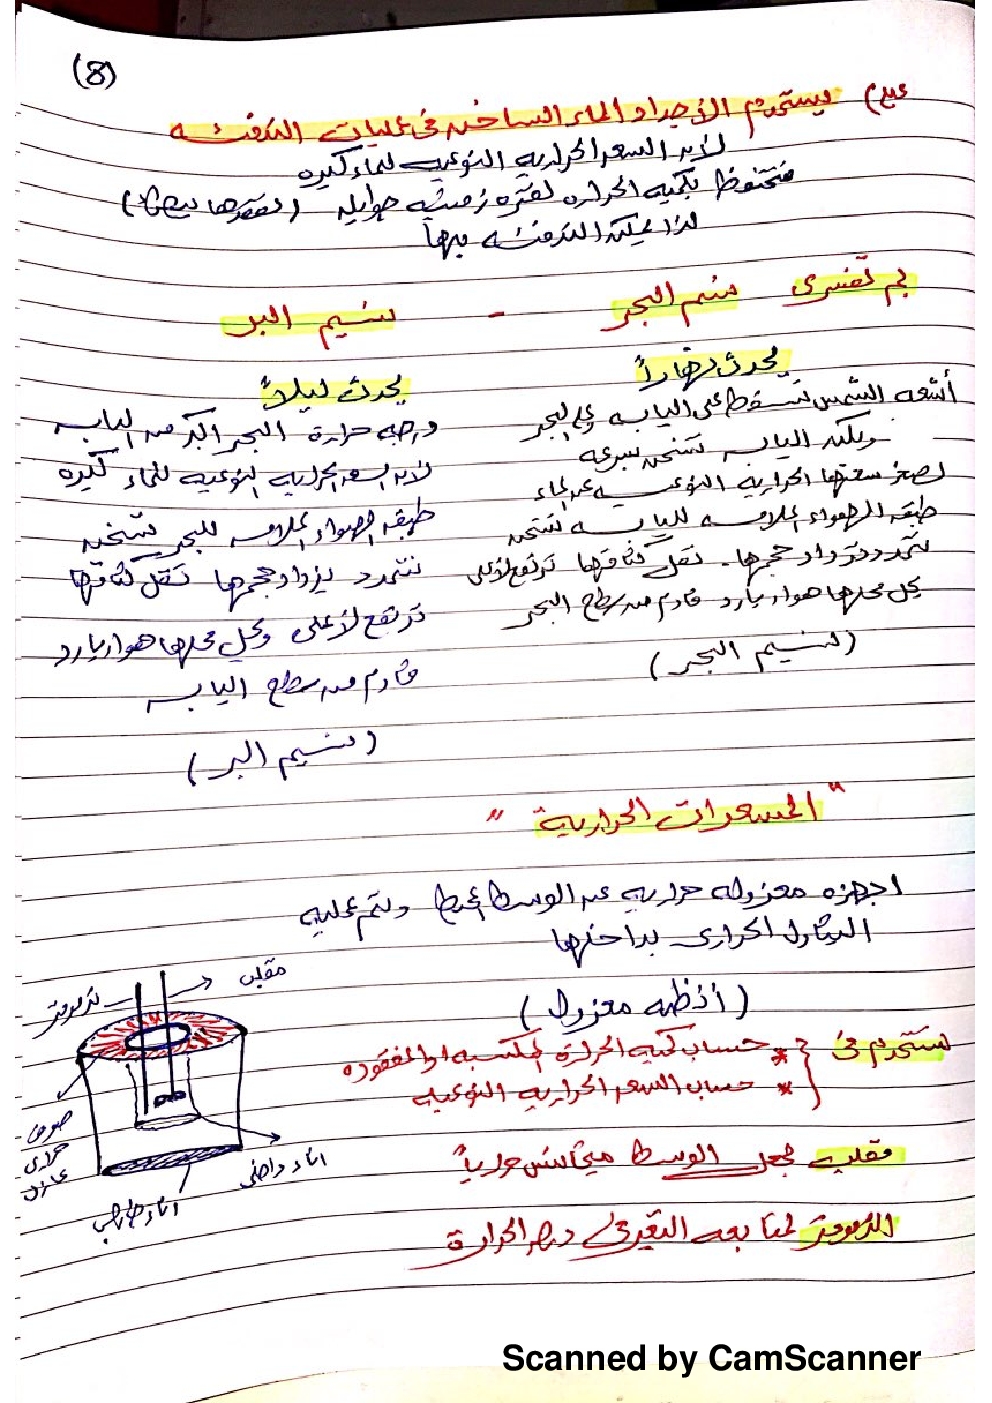 (8)
علل) يستخدم الأجداد الماء الساخن في عمليات التدفئه
لأن السعه الحراريه النوعيه للماء كبيره
فتحتفظ بكميه الحراره لفتره زمنيه طويله (تفقدها ببطئ)
لذا يمكن التدفئه بها
بم تفسرى نسيم البحر - نسيم البر
يحدث نهاراً
أشعه الشمس تسقط على اليابسه وعلى البحر
ولكن اليابسه تسخن بسرعه
لصغر سعتها الحراريه النوعيه عن الماء
طبقه الهواء الملامسه لليابسه تسخن
تتمدد ويزداد حجمها - تقل كثافتها ترتفع لأعلى
يحل محلها هواء بارد قادم من سطح البحر
(نسيم البحر)
يحدث ليلاً
درجه حرارة البحر اكبر من اليابسه
لأن السعه الحراريه النوعيه للماء كبيره
طبقه الهواء الملامسه للبحر تسخن
تتمدد يزداد حجمها تقل كثافتها
ترتفع لأعلى ويحل محلها هواء بارد
قادم من سطح اليابسه
(نسيم البر)
" المسعرات الحرارية "
اجهزه معزوله حراريه عن الوسط المحيط وتتم عليه
التبادل الحرارى بداخلها
(أنظمه معزوله)
تستخدم فى { * حساب كميه الحرارة المكتسبه او المفقوده
* حساب السعه الحراريه النوعيه
مقلب لجعل الوسط متجانس حرارياً
الترمومتر لمتابعه التغير فى درجه الحرارة
مقلب
ترمومتر
صوف
حرارى
عازل
اناء داخلى
اناء خارجى
Scanned by CamScanner